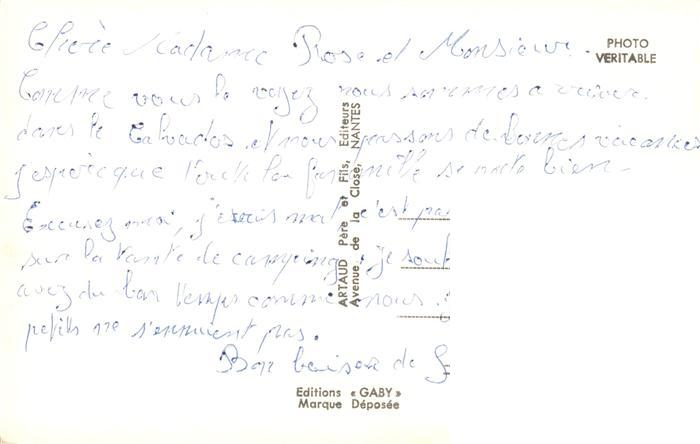 Chère Madame Rose et Monsieur.
Comme vous le voyez nous sommes arriver.
dans le Calvados. et nous passons de bonnes vacances
j'espère que toute la famille se porte bien-
Excusez moi, j'écris mal c'est pas
sur la tante de camping, je
avez du bon temps comme nous.
petits ne s'ennuient pas.
Bon baiser de
PHOTO
VERITABLE
ARTAUD Père et Fils, Editeurs
Avenue de la Close, NANTES
Editions « GABY »
Marque Déposée